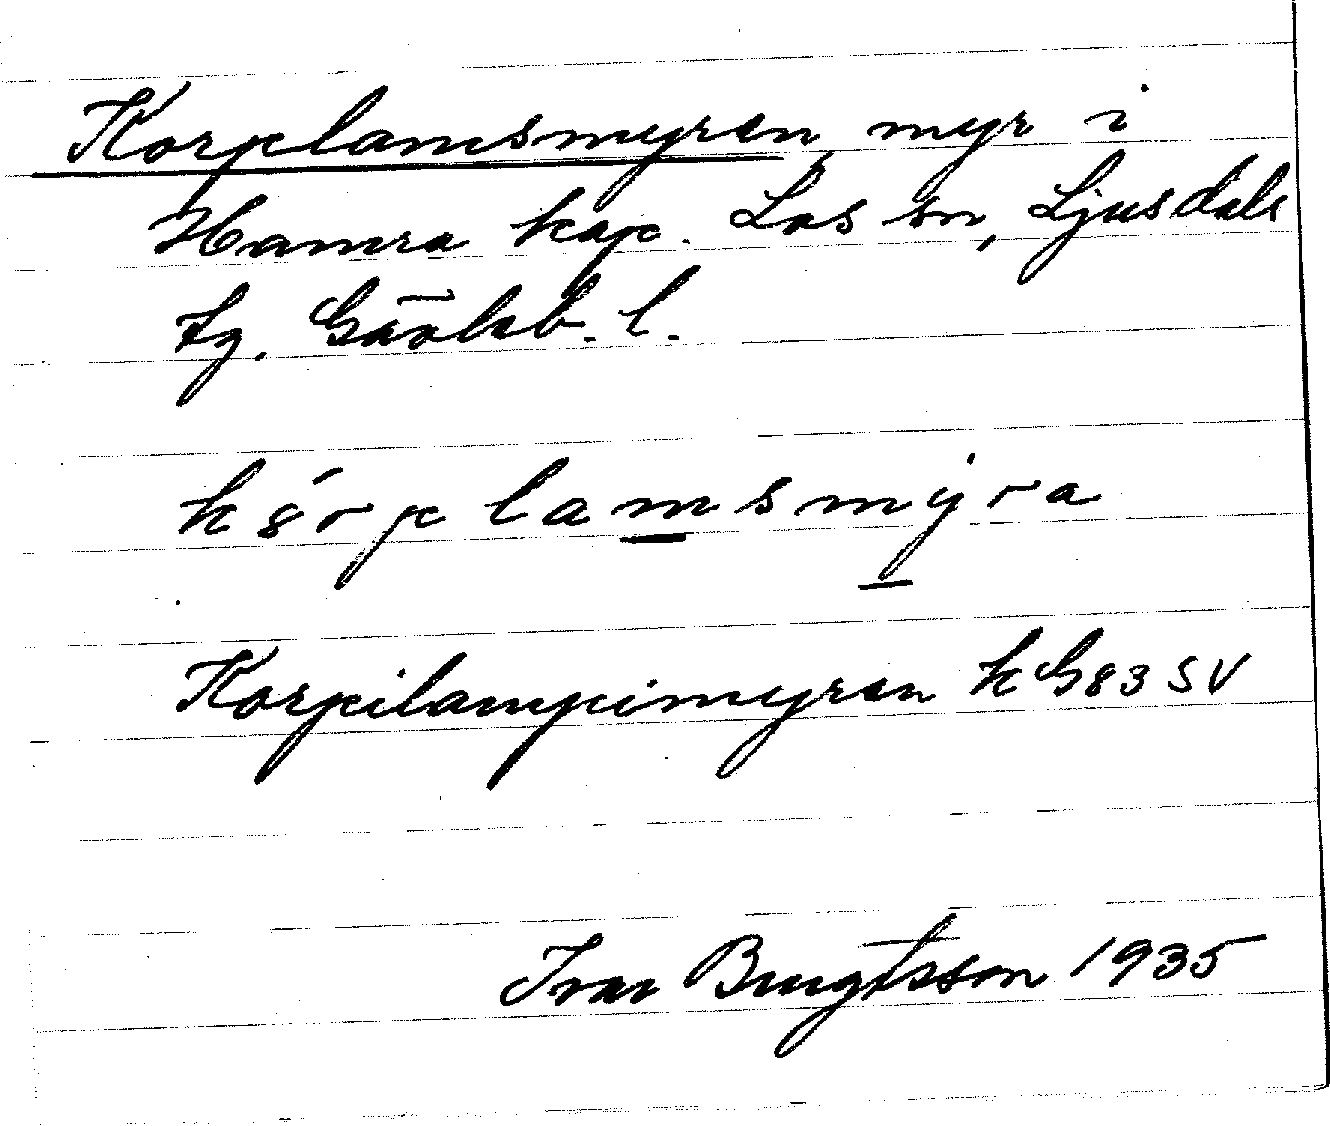 Korplamsmyren, myr i
Hamra kap. Los sn, Ljusdals
tg. Gävleb. l.
k8́rplamsmỳra
Korpilampimyren k G83 SV
Ivar Bengtsson 1935